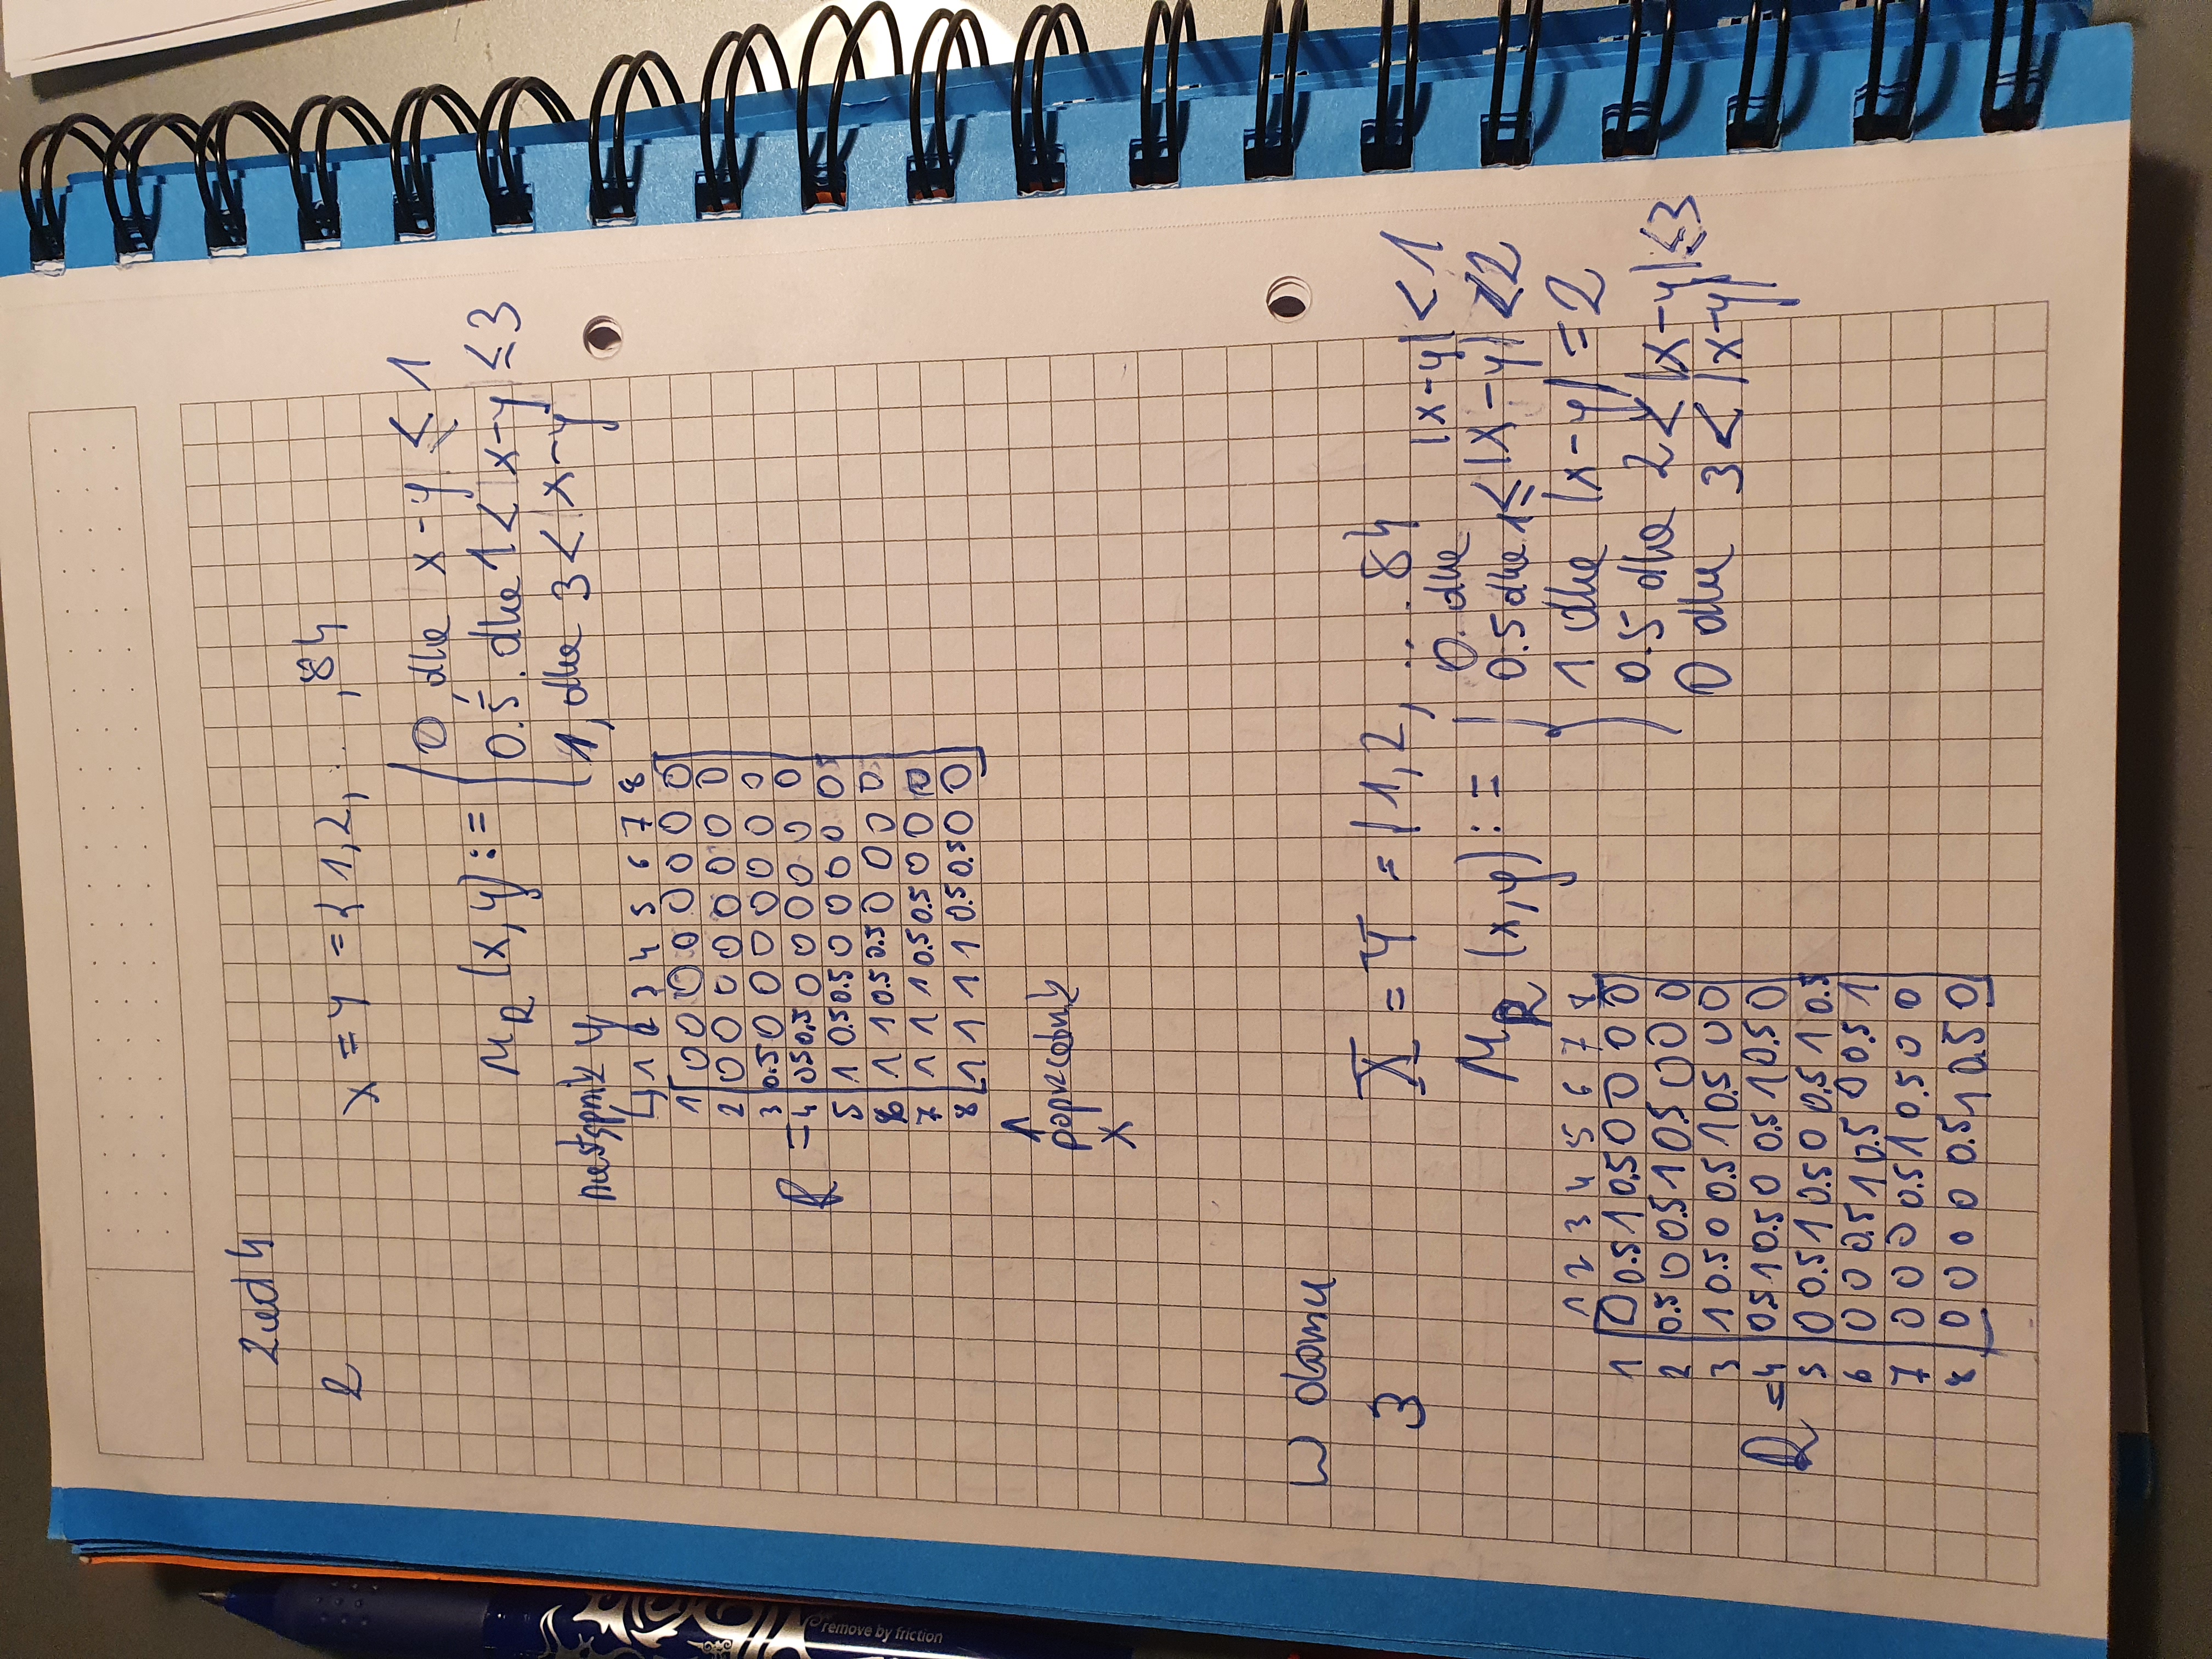 Zad 4
2 X = Y = { 1, 2, ... , 8}
μR (x, y) := { 0, dla x-y ≤ 1
0.5. dla 1 < x-y ≤ 3
1, dla 3 < x-y
następnik y
↳ 1 2 3 4 5 6 7 8
1 [ 0 0 0 0 0 0 0 0 ]
2 0 0 0 0 0 0 0 0
3 0.5 0 0 0 0 0 0 0
R = 4 0.5 0.5 0 0 0 0 0 0
5 1 0.5 0.5 0 0 0 0 0
6 1 1 0.5 0.5 0 0 0 0
7 1 1 1 0.5 0.5 0 0 0
8 1 1 1 1 0.5 0.5 0 0
↑
poprzednik
x
W domu
3 X = Y = { 1, 2, ... 8}
μR (x, y) := { 0. dla |x-y| < 1
0.5 dla 1 ≤ |x-y| < 2
1 dla |x-y| = 2
0.5 dla 2 < |x-y| ≤ 3
0 dla 3 < |x-y|
1 2 3 4 5 6 7 8
1 [ 0 0.5 1 0.5 0 0 0 0 ]
2 0.5 0 0.5 1 0.5 0 0 0
3 1 0.5 0 0.5 1 0.5 0 0
R = 4 0.5 1 0.5 0 0.5 1 0.5 0
5 0 0.5 1 0.5 0 0.5 1 0.5
6 0 0 0.5 1 0.5 0 0.5 1
7 0 0 0 0.5 1 0.5 0 0
8 0 0 0 0 0.5 1 0.5 0
remove by friction